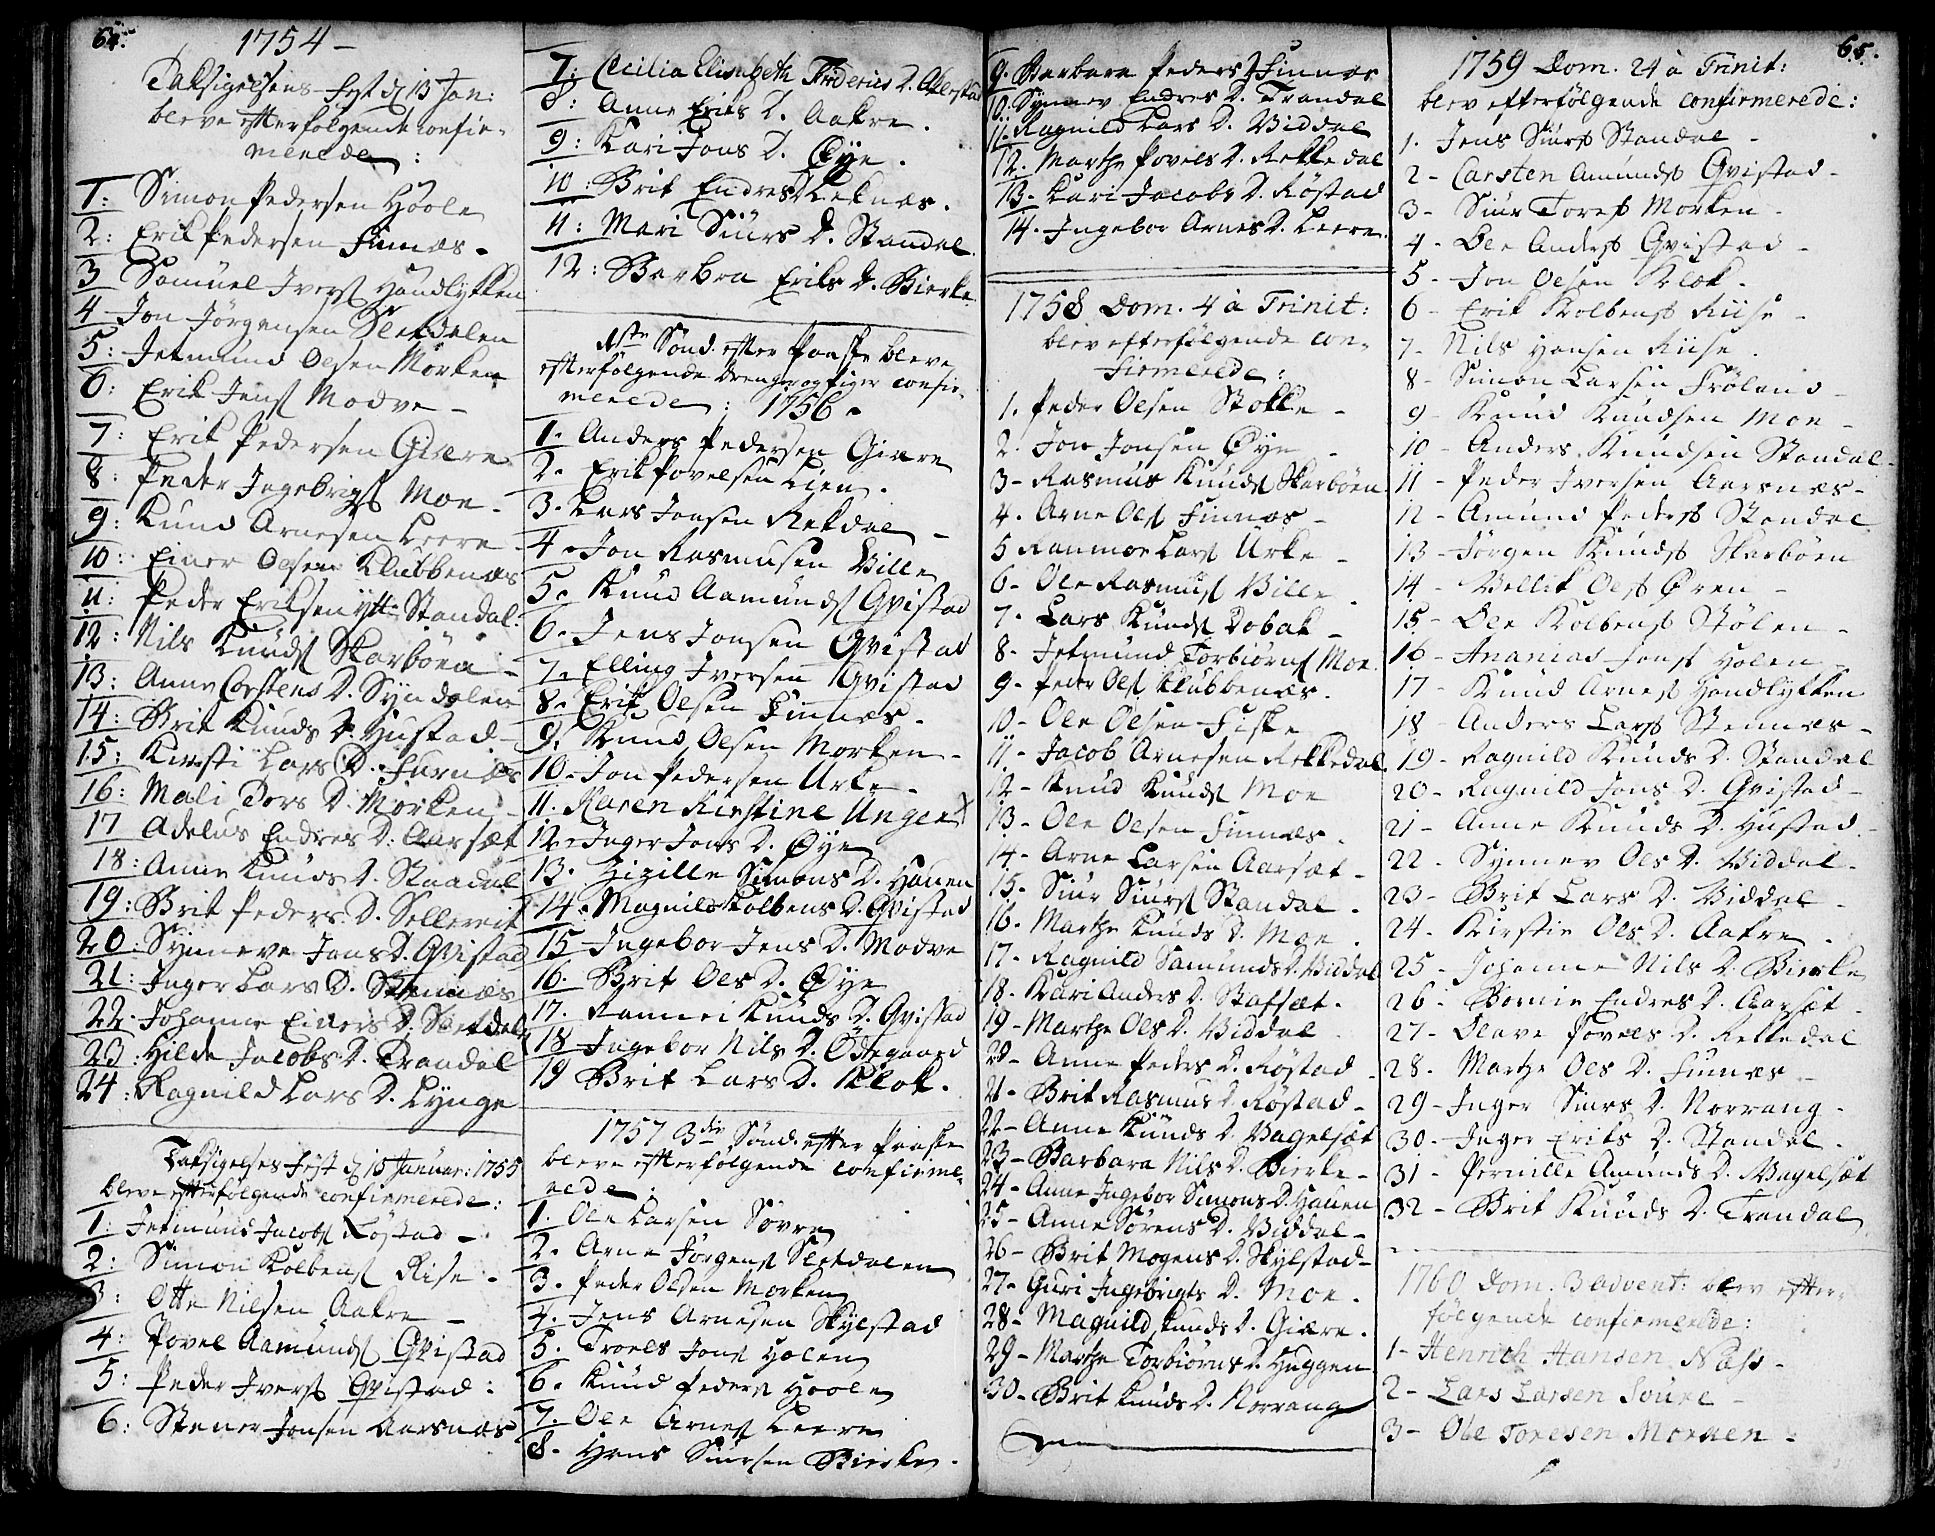 64.
1754 -
Taksigelsens-Fest d 13 Jan:
bleve efterfølgende confir-
merede:
1: Simon Pedersen Hoole
2: Erik Pedersen Finnæs -
3 Samuel Iverss Handlykken
4 Jon Jørgensen Sletdalen
5: Jetmund Olsen Morken
6: Erik Jenss Modve -
7: Erik Pedersen Giære
8: Peder Ingebrigss Moe -
9: Knud Arnesen Leere -
10: Einer Olsen Klubbenæs
11: Peder Eriksen ytt- Standal
12: Nils Knuds Skarbøen -
13: Anne Carstens D. Syndalen
14: Brit Knuds D. Hustad -
15: Kirsti Lars D. Furnæs
16: Mali Tors D. Morken
17 Adelus Endres D: Aarsæt
18: Anne Knuds D. Standal
19: Brit Peders D. Sellereit
20: Synneve Jans D. Qvistad
21: Inger Lars D. Stennæs
22- Johanne Einers D. Sletdal
23: Hilde Jacobs D. Trandal
24: Ragnild Lars D. Lynge
Taksigelses Fest d 15 Januar: 1755
bleve efterfølgende confirmerede:
1: Jetmund Jacobs Røstad -
2: Simon Kolbens Rise -
3: Otte Nilsen Aakre -
4: Povel Aamunds Qvistad
5: Peder Iverss Qvistad :
6: Stener Jonsen Aarsnæs
7: Cecilia Elisabeth Friderics D. Akerstad
8: Anne Eriks D. Aakre.
9: Kari Jons D. Øye.
10: Brit Endres D Leknæs.
11: Mari Siurs D. Standal
12: Barbra Eriks D. Bierke.
1ste Sønd. efter Paaske bleve
efterfølgende Drenge og Piger confir-
merede: 1756.
1. Anders Pedersen Giære
2. Erik Povelsen Lien.
3. Lars Jonsen Rekdal -
4. Jon Rasmusen Bille
5. Knud Aamunds Qvistad
6. Jens Jonsen Qvistad
7. Elling Iversen Qvistad
8. Erik Olsen Finnæs.
9. Knud Olsen Morken -
10. Jon Pedersen Urke -
11. Karen Kirstine Unger
12. Inger Jons D. Øye
13. Zizille Simons D. Hauen
14. Magnild Kolbens D. Qvistad
15 Ingebor Jens D. Modve
16. Brit Ols D. Øye
17. Rannei Knuds D. Qvistad
18 Ingebor Nils D. Ødegaard
19 Brit Lars D. Klok.
1757 3die Sønd. efter Paaske
bleve efterfølgende confirme-
rede:
1. Ole Larsen Søvre
2. Arne Jørgens Sletdalen
3. Peder Olsen Morken
4. Jens Arnesen Skylstad
5. Troels Jons Holen
6. Knud Peders Hoole
7. Ole Arness Leere
8. Hans Siursen Bierke.
9. Barbara Peders D Finnæs
10. Synnev Endres D. Trandal
11. Ragnild Lars D. Viddal
12. Marthe Povels D. Rekkedal
13. Kari Jacobs D. Røstad
14. Ingebor Arnes D. Leere.
1758 Dom. 4 à Trinit:
blev efterfølgende con-
firmerede:
1. Peder Olsen Stokke -
2. Jon Jonsen Øye -
3- Rasmus Knuds Skarbøen
4. Arne Ols Finnæs -
5 Ranmoe Lars Urke -
6- Ole Rasmuss Bille.
7. Lars Knuds Dobak -
8- Jetmund Torbiørns Moe.
9- Peder Ols Klubbenæs.
10- Ole Olsen Fiske
11- Jacob Arnesen Rekkedal
12- Knud Knuds Moe
13- Ole Olsen Finnæs.
14- Arne Larsen Aarsæt -
15. Siur Siurs Standal.
16. Marthe Knuds D. Moe.
17- Ragnild Samunds D. Viddal
18. Kari Anders D. Stafsæt.
19- Marthe Ols D. Viddal
20- Anne Peders D. Røstad
21- Brit Rasmus D. Røstad -
22- Anne Knuds D. Vagelsæt
23- Barbara Nils D. Bierke -
24- Anne Ingebor Simons D. Hauen
25- Anne Sørens D. Viddal -
26- Brit Mogens D. Skylstad -
27- Guri Ingebrigts D. Moe.
28- Magnild Knuds D. Giære.
29- Marthe Torbiørns D. Huggen
30- Brit Knuds D. Norrang
65.
1759 Dom. 24 à Trinit:
blev efterfølgende confirmerede:
1. Jens Siurs Standal -
2- Carsten Amunds Qvistad -
3- Siur Tores Morken -
4- Ole Anders Qvistad -
5- Jon Olsen Klok.
6- Erik Kolbens Riise -
7- Nils Hansen Riise.
8- Simon Larsen Frøland -
9- Knud Knudsen Moe -
10- Anders Knudsen Standal -
11- Peder Iversen Aarsnæs -
12- Amund Peders Standal
13- Jørgen Knuds Skarbøen
14- Vellik Ols Øren -
15- Ole Kolbens Stølen -
16- Ananias Jens Holen
17- Knud Arness Handlykken
18- Anders Lars Stennæs -
19- Ragnild Knuds D. Standal
20- Ragnild Jons D. Qvistad -
21- Anne Knuds D. Hustad -
22- Synnev Ols D. Viddal -
23- Brit Lars D. Viddal -
24- Kirstie Ols D. Aakre.
25- Johanne Nils D. Bierke
26- Bornie Endres D. Aarsæt
27- Olave Povels D. Rekkedal
28. Marthe Ols D. Finnæs -
29- Inger Siurs D. Norrang -
30- Inger Eriks D. Standal.
31- Pernille Amunds D. Vagelsæt
32- Brit Knuds D. Trandal
1760 Dom. 3 advent: blev efter-
følgende confirmerede:
1- Henrich Hansen Næss -
2- Lars Larsen Soure -
3- Ole Toresen Morken -